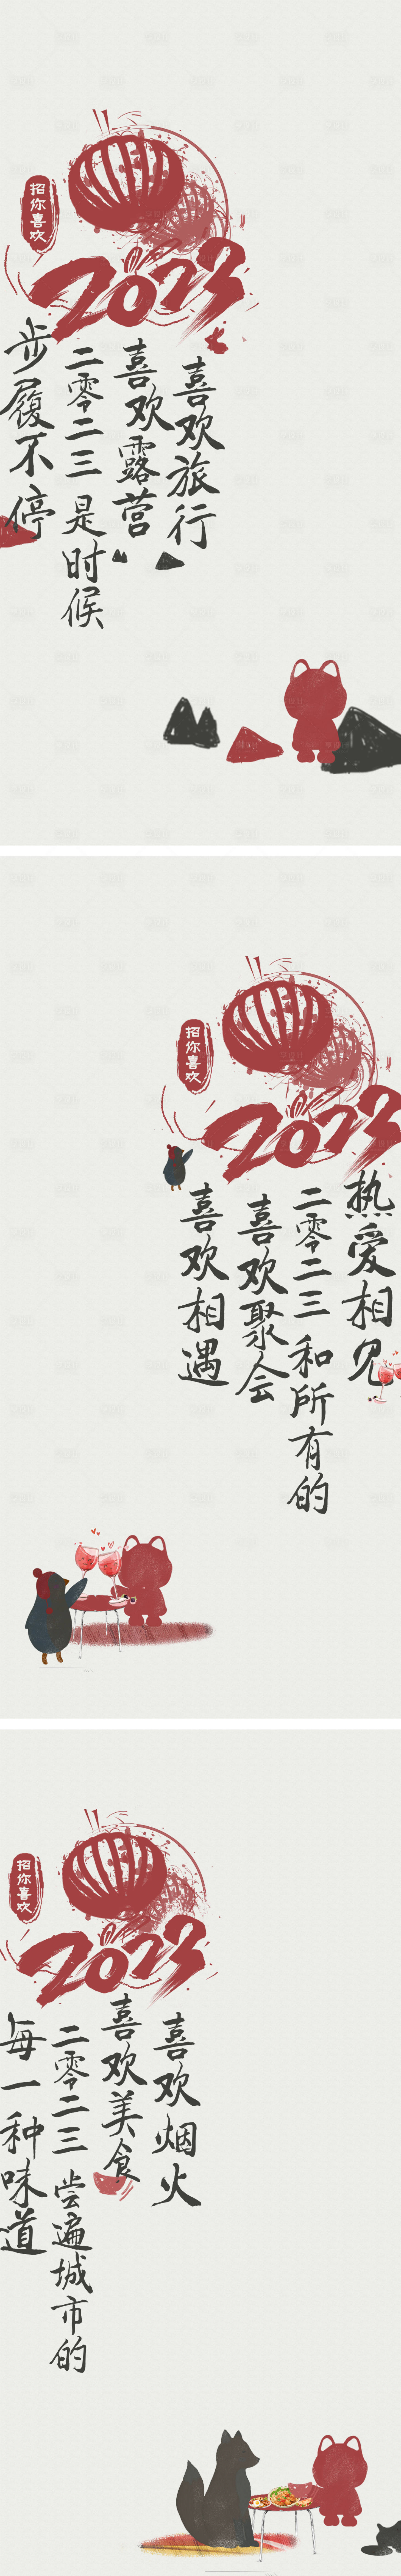 招你喜欢
2023
喜欢旅行
喜欢露营
二零二三 是时候
步履不停
招你喜欢
2023
热爱相见
二零二三 和所有的
喜欢聚会
喜欢相遇
招你喜欢
2023
喜欢烟火
喜欢美食
二零二三 尝遍城市的
每一种味道